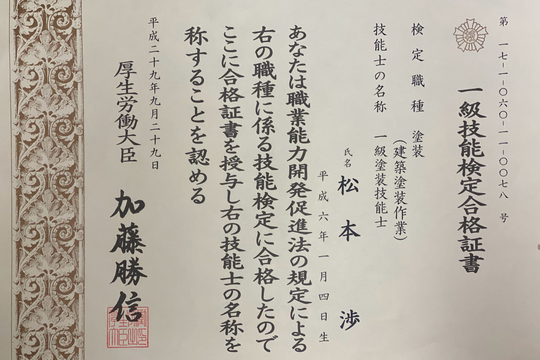 第 一七-一-〇六〇-一一-〇〇七八 号
一級技能検定合格証書
検定職種 塗装
(建築塗装作業)
技能士の名称 一級塗装技能士
氏名 松本 渉
平成六年一月四日生
あなたは職業能力開発促進法の規定による
右の職種に係る技能検定に合格したので
ここに合格証書を授与し右の技能士の名称を
称することを認める
平成二十九年九月二十九日
厚生労働大臣 加藤勝信